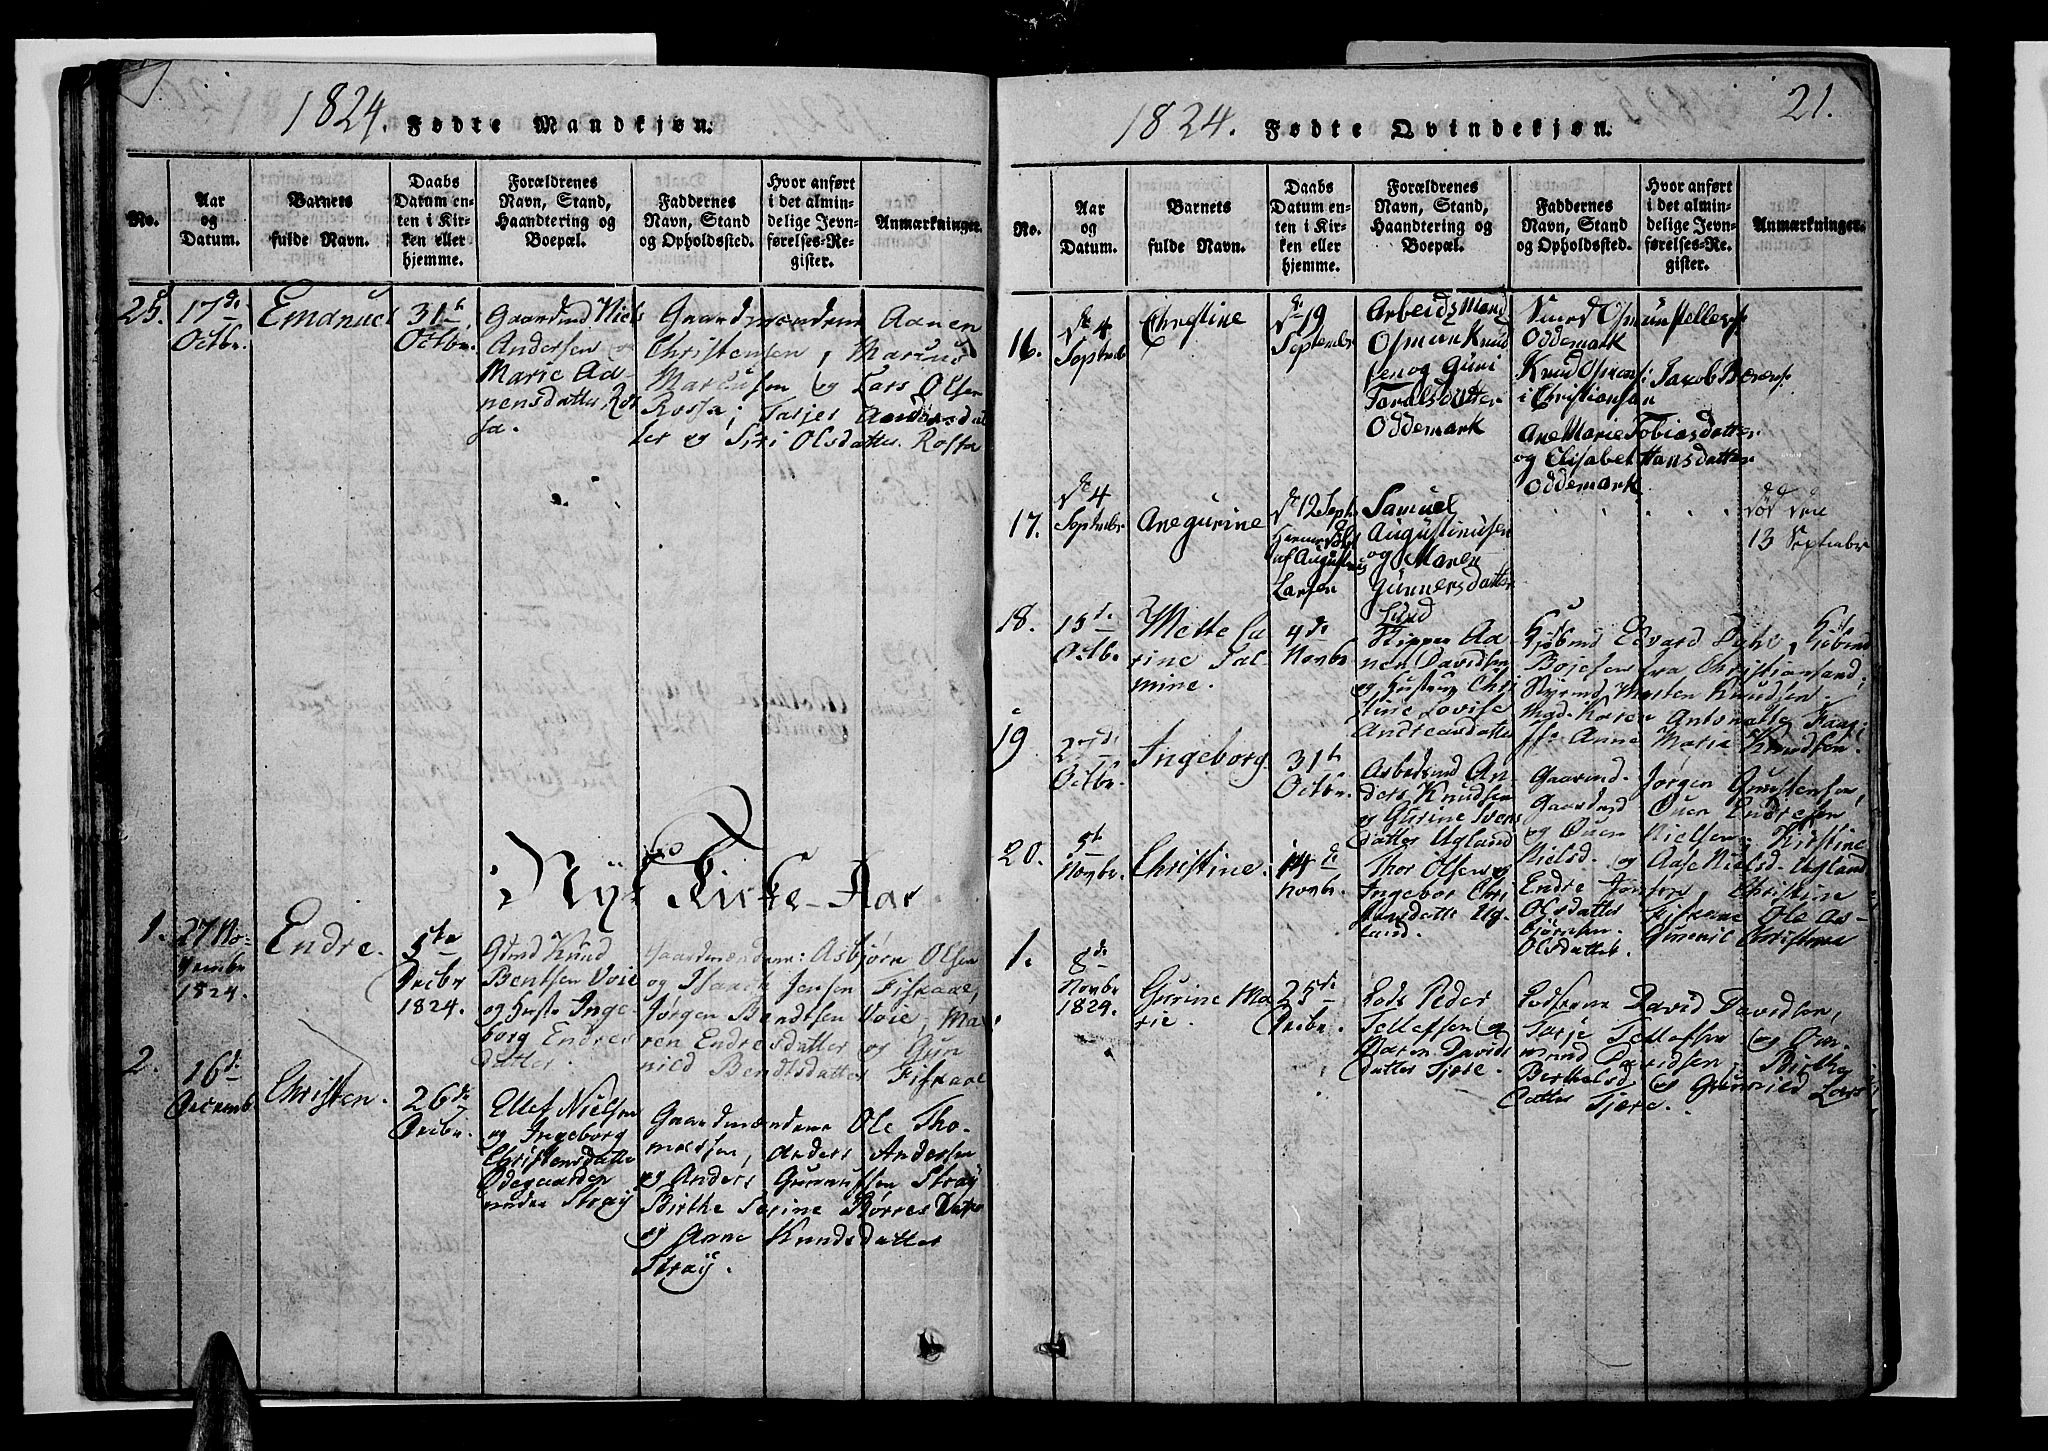 1824. Fødte Mandkjøn.
No.
Aar
og
Datum.
Barnets
fulde Navn.
Daabs
Datum en-
ten i Kir-
ken eller
hjemme.
Forældrenes
Navn, Stand,
Haandtering og
Boepæl.
Faddernes
Navn, Stand
og Opholdssted.
Hvor anført
i det almin-
delige Jevn-
førelses-Re-
gister.
Anmærkninger.
25.
17de
Octbr.
Emanuel
31te
Octbr.
Gaardmd Niels
Andersen og
Marie Aa-
nensdatter, Ros
sa.
Gaardmændene Aanen
Christensen, Marcus
Marcussen og Lars Olsen
Rossa; Tarjer Andersdat
ter og Siri Olsdatter Rossa
Nyt Kirke-Aar
1.
27 No-
vembr
1824.
Endre.
5te
Decbr
1824.
Gmd Knud
Bentsen Voie
og Hustr Inge-
borg Endres
datter.
Gaardmændene: Asbjørn Olsen
og Jens Jensen Fiskaae,
Jørgen Bendtsen Voie, Ma
ren Endresdatter og Gun
nild Bendtsdatter Fiskaae
2.
16de
Decemb.
Christen.
26de
Decbr.
Ellef Nielsen
og Ingeborg
Christensdatter
Ødegaarden
under Straÿ
Gaardmændene Ole Tho-
massen, Anders Andersen
og Anders Gunnufsen Straÿ
Birthe Serine Børres Datter
og Anne Knudsdatter
Straÿ.
1824. Fødte Qvindekjøn.
21.
No.
Aar
og
Datum.
Barnets
fulde Navn.
Daabs
Datum en-
ten i Kir-
ken eller
hjemme.
Forældrenes
Navn, Stand,
Haandtering og
Boepæl.
Faddernes
Navn, Stand
og Opholdssted.
Hvor anført
i det almin-
delige Jevn-
førelses-Re-
gister.
Anmærkninger.
16.
de 4
Septembr
Christine
de 19
Septembr
Arbeids Mand
Osmun Knud
sen og Guri
Tarals datter
Oddemark
Oddemark
Knud Osmunsen Jacob
i Christiansan
Ane Marie Tobias datter
og Elisabet Hansdatter
Oddemark
17.
de 4
Septembr
Ane gurine
de 12 Septr
hjemme Døbt
af Augustinus
Larsen
Samuel
Augustinusen
og Maren
Gunners datter
Lund
død den
13 September
18.
15de
Octbr
Mette Ca
rine Tal-
mine.
4de
Novbr
Skipper Aa-
nen Davidsen
og Hustrue Chri
stine Lovise
Andreasdatter
Kjøbmd Edvard Dahl, Kjøbmd
Boiesen fra Christiansand;
Styrmd Morten Knudsen.
Mad. Karen Antonette Faae;
Jfr Anne Maria Knudsen.
19
27de
Octbr.
Ingeborg.
31te
Octbr.
Arbeidsmd An-
ders Knudsen
og Gurine Ivers
datter Ugland
Gaardmd. Jørgen Gundersen,
Gaardmd Ouen Endresen
og Ouen Nielsen, Kirstine
Nielsd. og Aase Nielsd. Ugland
20.
5te
Novbr.
Christine.
14de
Novbr.
Thor Olsen og
Ingebor Chri
stensdatter Ug-
land.
Endre Tomsen, Christine
Olsdatter Fiskaae Ole As-
bjørnsen. Gunnil Christense
Olsdatter.
1.
8de
Novbr
1824.
Gurine Ma-
rie.
25de
Decbr.
Lods Peder
Tellefsen og
Maren Davids
datter Fjære.
Lodserne David Davidsen,
Tarje Tellefsen og Om-
mund Davidsen, Birthe
Berthelsd og Gunnild Lars
datter Fjære.